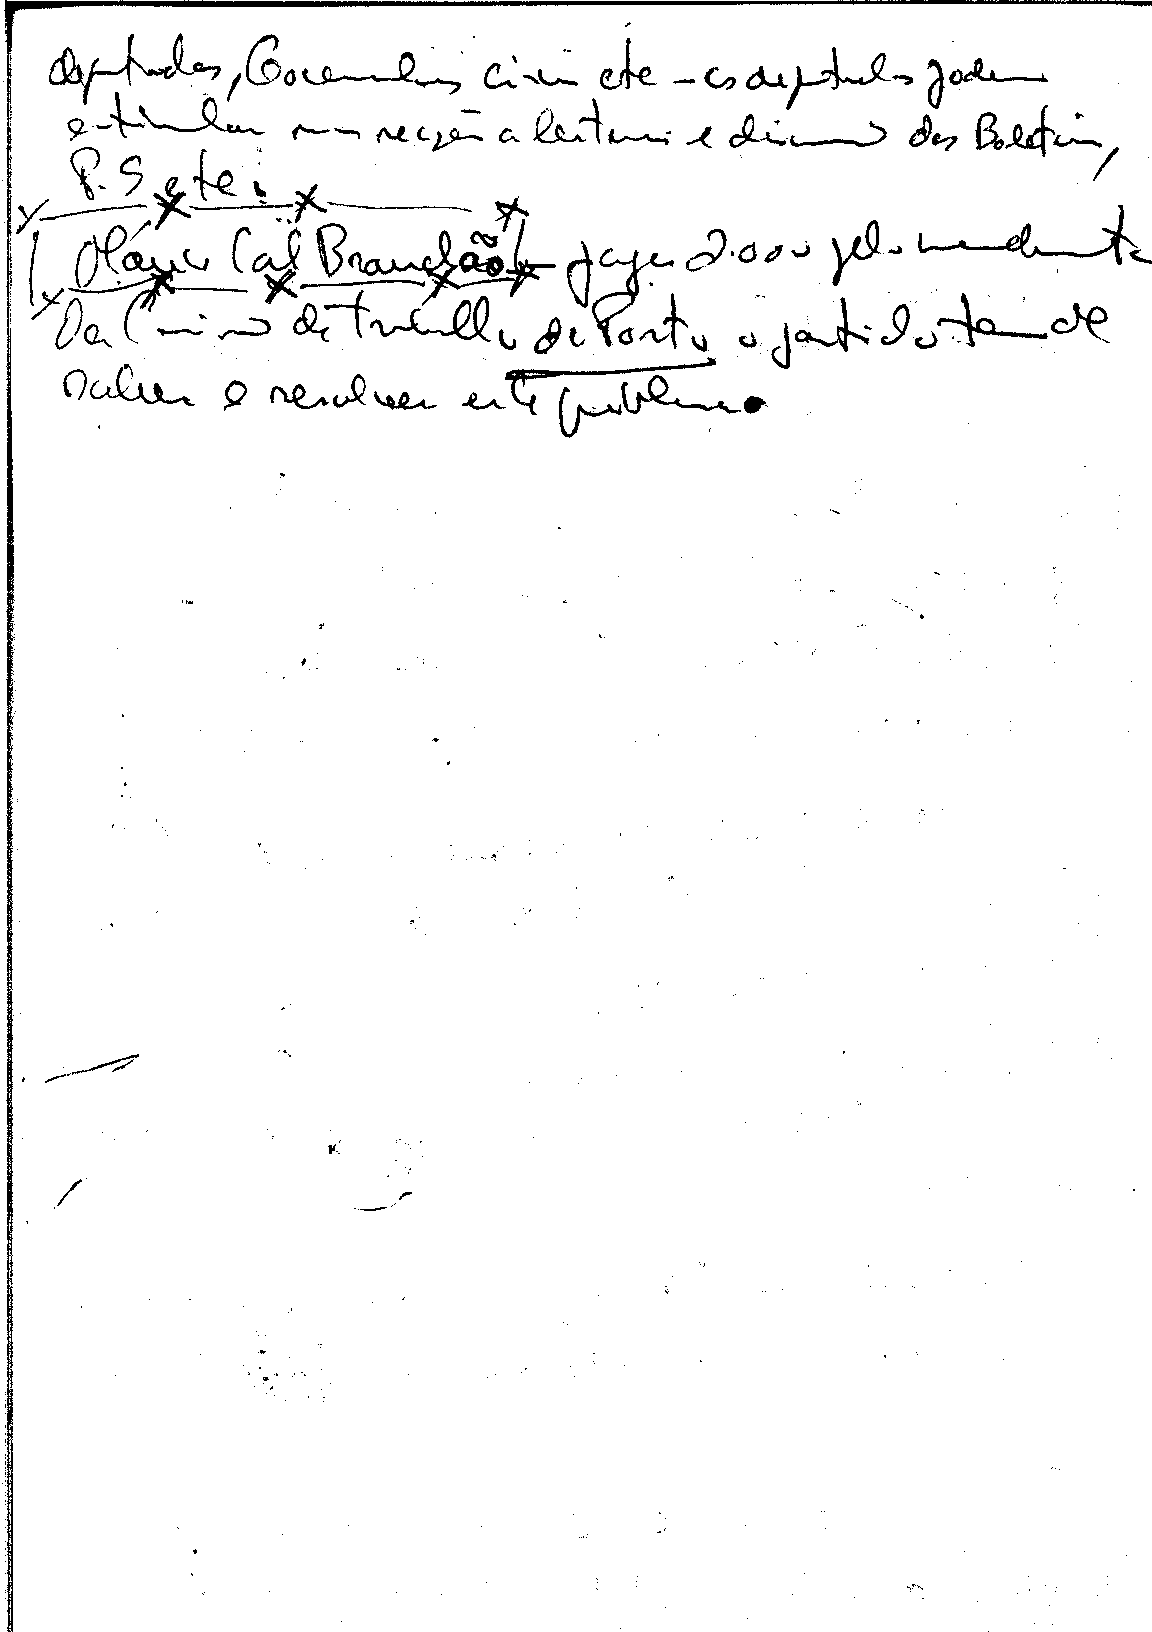 deputados, Governadores civis etc – os deputados podem
estimular nas secções a leitura e discussão dos Boletins,
P. S etc.
Mário Cal Brandão – pagou 2.000 pelo mandamento
da Comissão de Trabalho do Porto o partido tem de
saber e resolver este problema.